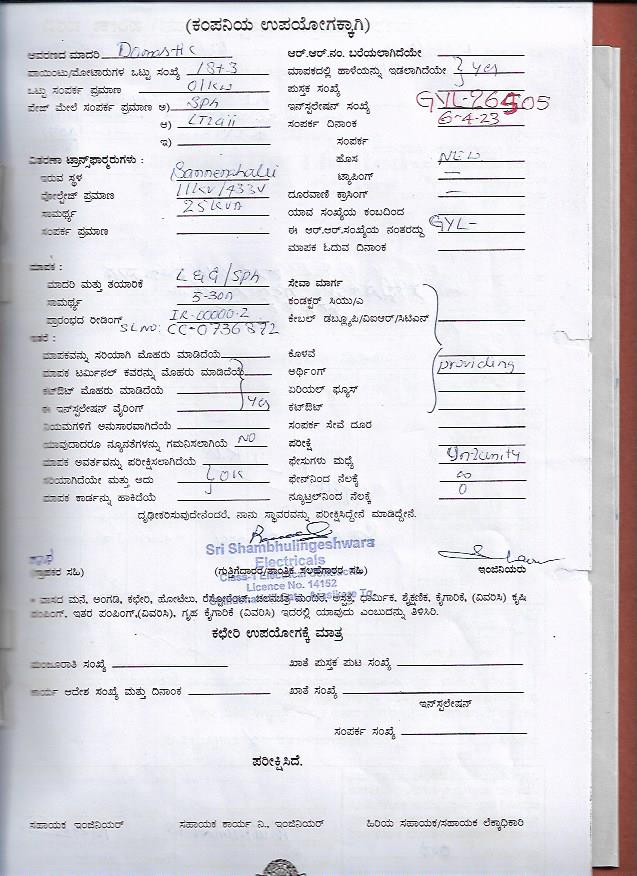 (ಕಂಪನಿಯ ಉಪಯೋಗಕ್ಕಾಗಿ)
ಆವರಣದ ಮಾದರಿ
ಪಾಯಿಂಟು/ಮೋಟಾರುಗಳ ಒಟ್ಟು ಸಂಖ್ಯೆ 18+3
ಒಟ್ಟು ಸಂಪರ್ಕ ಪ್ರಮಾಣ 01kw
ವೇಜ್ ಮೇಲೆ ಸಂಪರ್ಕ ಪ್ರಮಾಣ ಅ) Sph
ಆ)
ಇ)
ವಿತರಣಾ ಟ್ರಾನ್ಸ್‌ಫಾರ್ಮರುಗಳು :
ಇರುವ ಸ್ಥಳ
ವೋಲ್ಟೇಜ್ ಪ್ರಮಾಣ 11KV/433V
ಸಾಮರ್ಥ್ಯ 25KVA
ಸಂಪರ್ಕ ಪ್ರಮಾಣ
ಆರ್.ಆರ್.ನಂ. ಬರೆಯಲಾಗಿದೆಯೇ
ಮಾಪಕದಲ್ಲಿ ಹಾಳೆಯನ್ನು ಇಡಲಾಗಿದೆಯೇ } Yes
ಪುಸ್ತಕ ಸಂಖ್ಯೆ
ಇನ್‌ಸ್ಟಲೇಷನ್ ಸಂಖ್ಯೆ GYL-26505
ಸಂಪರ್ಕ ದಿನಾಂಕ 6-4-23
ಸಂಪರ್ಕ
ಹೊಸ NEW
ಟ್ಯಾಪಿಂಗ್ —
ದೂರವಾಣಿ ಕ್ರಾಸಿಂಗ್ —
ಯಾವ ಸಂಖ್ಯೆಯ ಕಂಬದಿಂದ
ಈ ಆರ್.ಆರ್.ಸಂಖ್ಯೆಯ ನಂತರದ್ದು GYL-
ಮಾಪಕ ಓದುವ ದಿನಾಂಕ
ಮಾಪಕ :
ಮಾದರಿ ಮತ್ತು ತಯಾರಿಕೆ L&G/Sph
ಸಾಮರ್ಥ್ಯ 5-30A
ಪ್ರಾರಂಭದ ರೀಡಿಂಗ್ IR-00000-2
SL NO: CC-0736872
ಸೇವಾ ಮಾರ್ಗ
ಕಂಡಕ್ಟರ್ ಸಿಯು/ಎ
ಕೇಬಲ್ ಡಬ್ಲ್ಯೂಪಿ/ವಿಐಆರ್/ಸಿಟಿಎನ್
ಇತರೆ :
ಮಾಪಕವನ್ನು ಸರಿಯಾಗಿ ಮೊಹರು ಮಾಡಿದೆಯೆ
ಮಾಪಕ ಟರ್ಮಿನಲ್ ಕವರನ್ನು ಮೊಹರು ಮಾಡಿದೆಯೆ
ಕಟ್‌ಔಟ್ ಮೊಹರು ಮಾಡಿದೆಯೆ
ಈ ಇನ್‌ಸ್ಟಲೇಷನ್ ವೈರಿಂಗ್ } Yes
ನಿಯಮಗಳಿಗೆ ಅನುಸಾರವಾಗಿದೆಯೆ
ಯಾವುದಾದರೂ ನ್ಯೂನತೆಗಳನ್ನು ಗಮನಿಸಲಾಗಿಯೆ NO
ಮಾಪಕ ಅವರ್ತವನ್ನು ಪರೀಕ್ಷಿಸಲಾಗಿದೆಯೆ
ಸರಿಯಾಗಿದೆಯೇ ಮತ್ತು ಅದು } OK
ಮಾಪಕ ಕಾರ್ಡನ್ನು ಹಾಕಿದೆಯೆ
ಕೊಳವೆ
ಅರ್ಥಿಂಗ್ providing
ಏರಿಯಲ್ ಫ್ಯೂಸ್
ಕಟ್‌ಔಟ್
ಸಂಪರ್ಕ ಸೇವೆ ದೂರ
ಪರೀಕ್ಷೆ
ಫೇಸುಗಳು ಮಧ್ಯೆ
ಫೇಸ್‌ನಿಂದ ನೆಲಕ್ಕೆ ∞
ನ್ಯೂಟ್ರಲ್‌ನಿಂದ ನೆಲಕ್ಕೆ 0
ದೃಢೀಕರಿಸುವುದೇನೆಂದರೆ, ನಾನು ಸ್ಥಾವರವನ್ನು ಪರೀಕ್ಷಿಸಿದ್ದೇನೆ ಮಾಡಿದ್ದೇನೆ.
Sri Shambhulingeshwara
Electricals
Class-1 Electrical
Licence No. 14152
(ಗ್ರಾಹಕರ ಸಹಿ)
(ಗುತ್ತಿಗೆದಾರರ/ತಾಂತ್ರಿಕ ಸಲಹೆಗಾರರ ಸಹಿ)
ಇಂಜಿನಿಯರು
* ವಾಸದ ಮನೆ, ಅಂಗಡಿ, ಕಛೇರಿ, ಹೋಟೆಲು, ರೆಸ್ಟೋರೆಂಟ್, ಚಲನಚಿತ್ರ ಮಂದಿರ, ಆಸ್ಪತ್ರೆ, ಧಾರ್ಮಿಕ, ಶೈಕ್ಷಣಿಕ, ಕೈಗಾರಿಕೆ, (ವಿವರಿಸಿ) ಕೃಷಿ
ಪಂಪಿಂಗ್, ಇತರ ಪಂಪಿಂಗ್,(ವಿವರಿಸಿ), ಗೃಹ ಕೈಗಾರಿಕೆ (ವಿವರಿಸಿ) ಇದರಲ್ಲಿ ಯಾವುದು ಎಂಬುದನ್ನು ತಿಳಿಸಿರಿ.
ಕಛೇರಿ ಉಪಯೋಗಕ್ಕೆ ಮಾತ್ರ
ಮಂಜೂರಾತಿ ಸಂಖ್ಯೆ
ಖಾತೆ ಪುಸ್ತಕ ಪುಟ ಸಂಖ್ಯೆ
ಕಾರ್ಯ ಆದೇಶ ಸಂಖ್ಯೆ ಮತ್ತು ದಿನಾಂಕ
ಖಾತೆ ಸಂಖ್ಯೆ
ಇನ್‌ಸ್ಟಲೇಷನ್
ಸಂಪರ್ಕ ಸಂಖ್ಯೆ
ಪರೀಕ್ಷಿಸಿದೆ.
ಸಹಾಯಕ ಇಂಜಿನಿಯರ್
ಸಹಾಯಕ ಕಾರ್ಯ ನಿ., ಇಂಜಿನಿಯರ್
ಹಿರಿಯ ಸಹಾಯಕ/ಸಹಾಯಕ ಲೆಕ್ಕಾಧಿಕಾರಿ